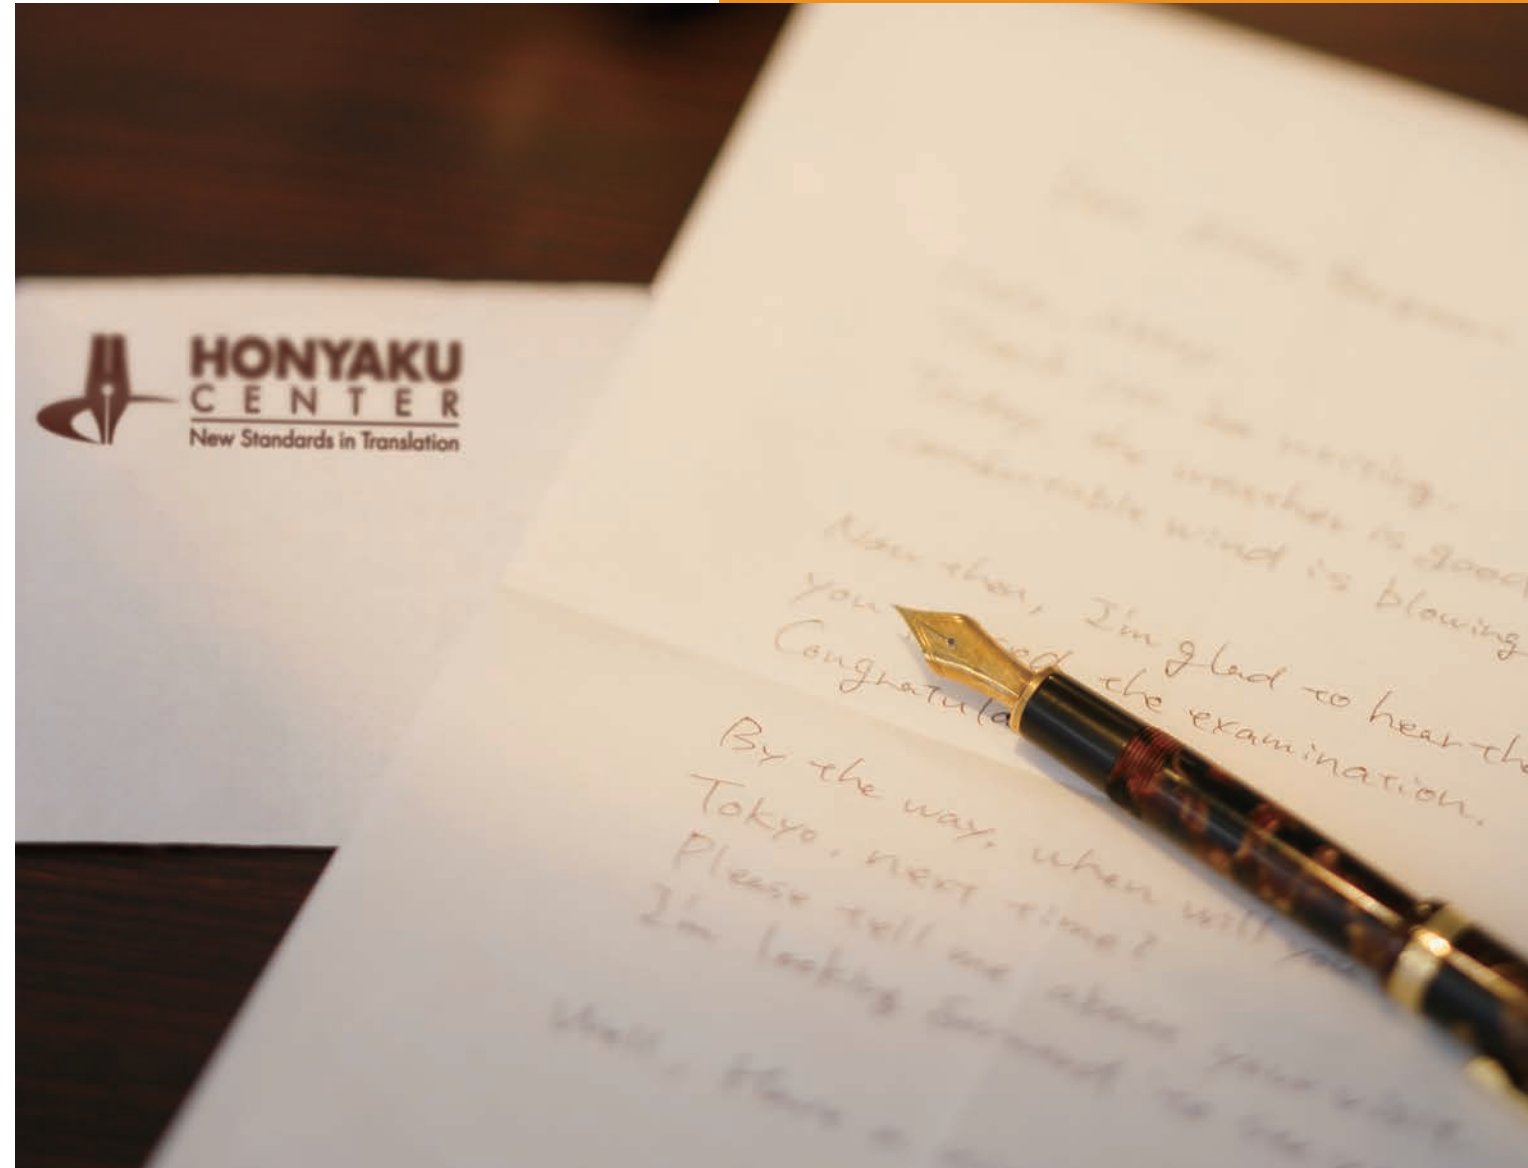 HONYAKU
CENTER
New Standards in Translation
writing.
Today the weather is good
comfortable wind is blowing
Now then, I'm glad to hear the
you the examination.
By the way, when will you
Tokyo, next time?
Please tell me about your visit.
I'm looking forward to see
Well, Have a